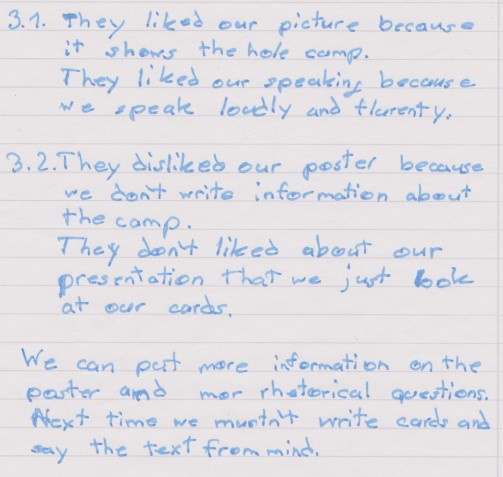 3.1. They liked our picture because
it shows the hole camp.
They liked our speaking because
we speak loudly and flurenty.
3.2. They disliked our poster because
we don't write information about
the camp.
They don't liked about our
presentation that we just look
at our cards.
We can put more information on the
poster and mor rhetorical questions.
Next time we muntn't write cards and
say the text from mind.